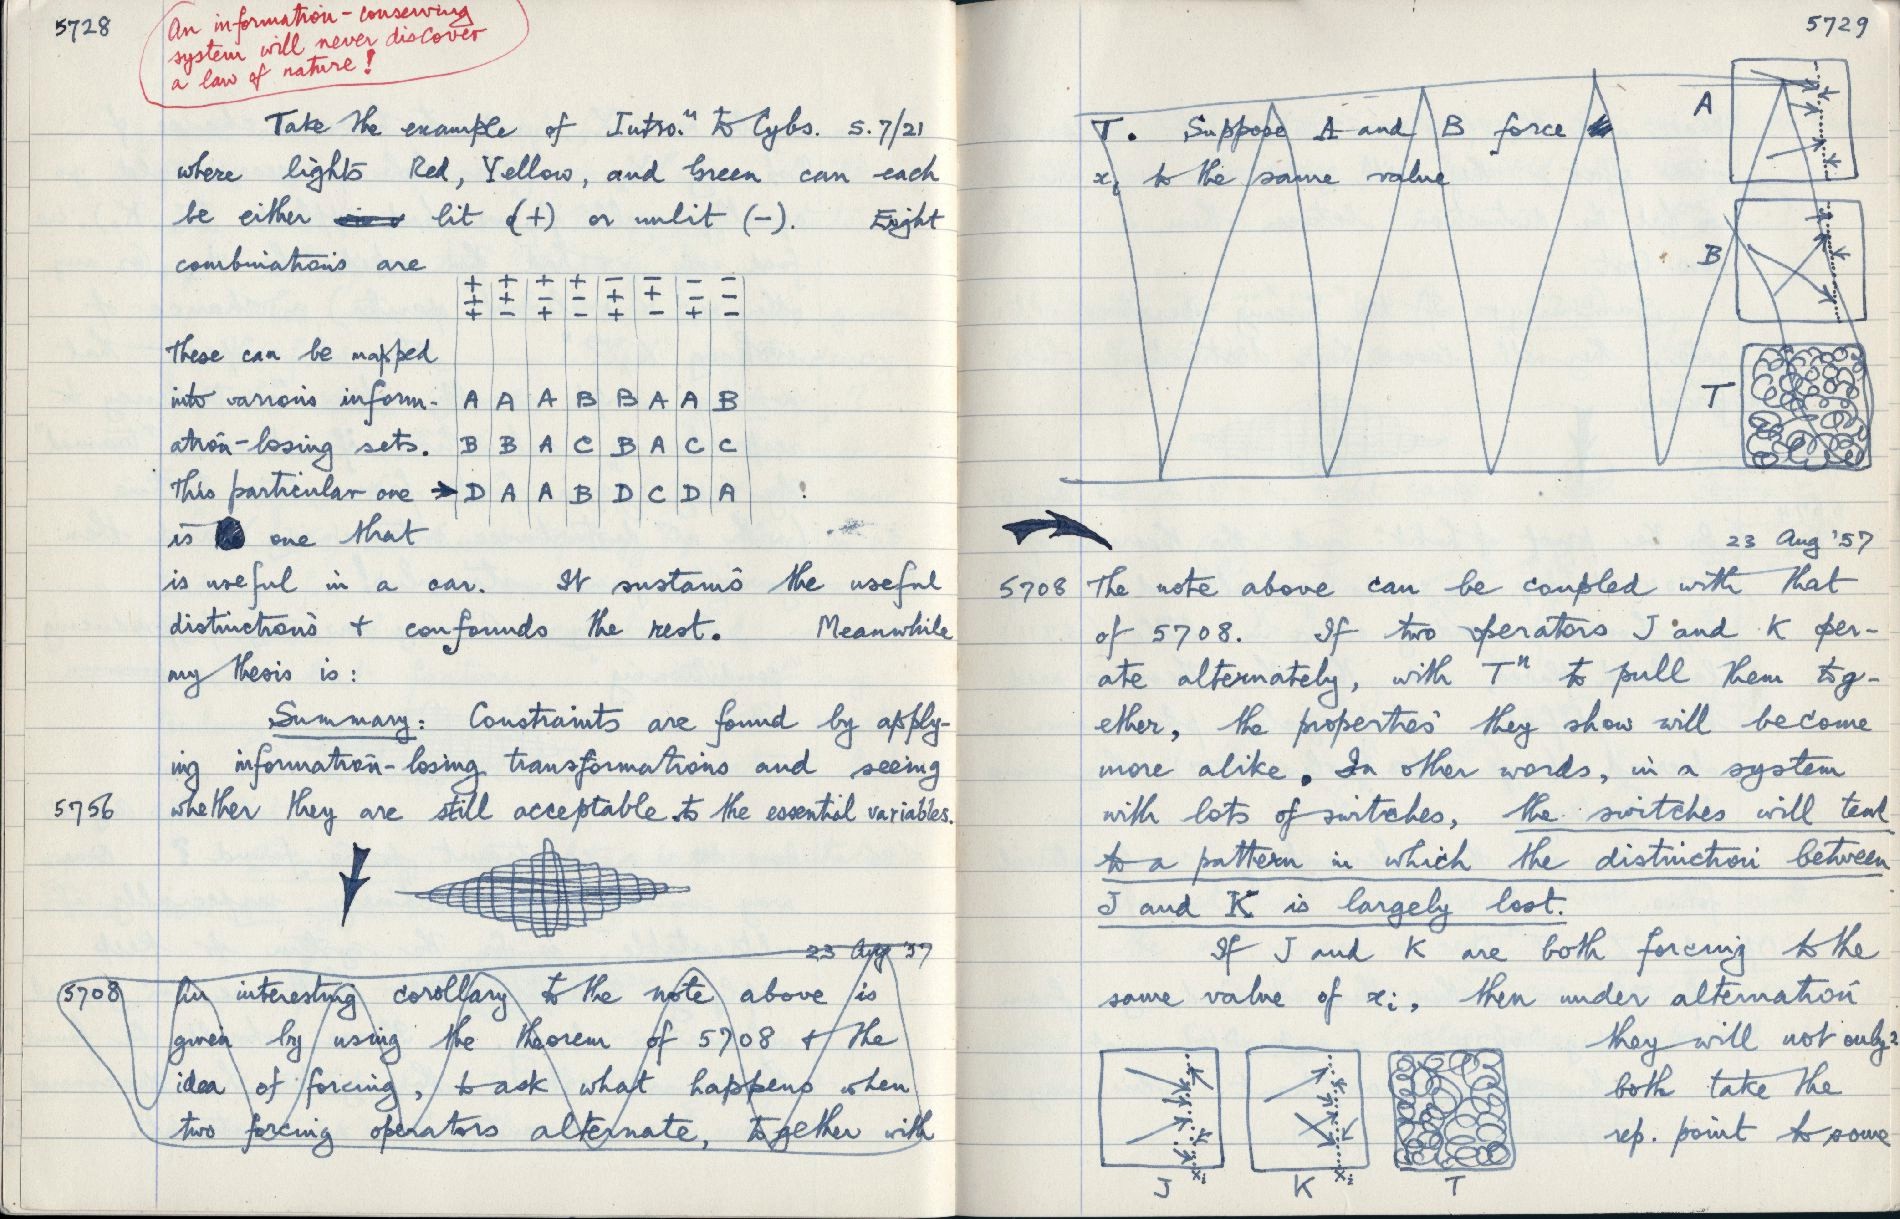 5728
An information-conserving
system will never discover
a law of nature!
Take the example of Intro.ⁿ to Cybs. S.7/21
where lights Red, Yellow, and Green can each
be either lit (+) or unlit (-). Eight
combinations are
+ + + + - - - -
+ + - - + + - -
+ - + - + - + -
These can be mapped
into various inform- A A A B B A A B
ation-losing sets. B B A C B A C C
This particular one → D A A B D C D A
is one that
is useful in a car. It sustains the useful
distinctions + confounds the rest. Meanwhile
my thesis is:
Summary: Constraints are found by apply-
ing information-losing transformations and seeing
5756 whether they are still acceptable to the essential variables.
23 Aug '57
5708 An interesting corollary to the note above is
given by using the theorem of 5708 + the
idea of forcing, to ask what happens when
two forcing operators alternate, together with
5729
T. Suppose A and B force
xᵢ to the same value
A
B
T
23 Aug '57
5708 The note above can be coupled with that
of 5708. If two operators J and K oper-
ate alternately, with Tⁿ to pull them tog-
ether, the properties they show will become
more alike. In other words, in a system
with lots of switches, the switches will tend
to a pattern in which the distinction between
J and K is largely lost.
If J and K are both forcing to the
same value of xᵢ, then under alternation
they will not only
both take the
rep. point to some
xᵢ xᵢ
J K T